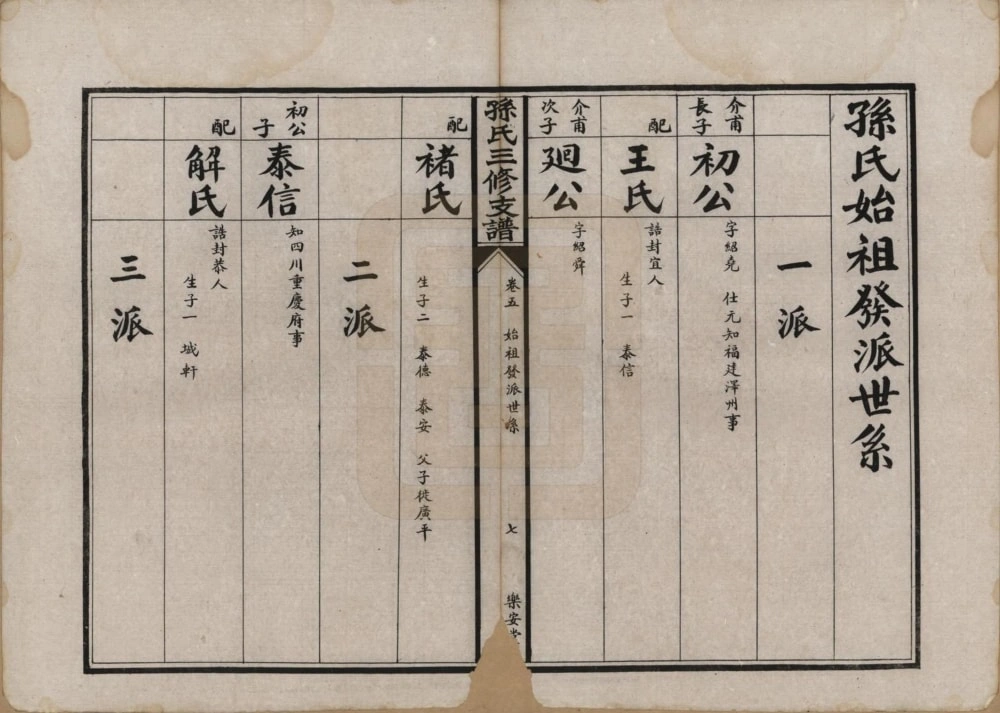 孫氏始祖發派世系
一派
介甫長子
初公
字紹堯 仕元知福建澤州事
配
王氏
誥封宜人
生子一 泰信
介甫次子
廻公
字紹舜
孫氏三修支譜
卷五 始祖發派世系 七 樂安堂
配
褚氏
生子二 泰德 泰安 父子徙廣平
二派
初公子
泰信
知四川重慶府事
配
解氏
誥封恭人
生子一 城軒
三派